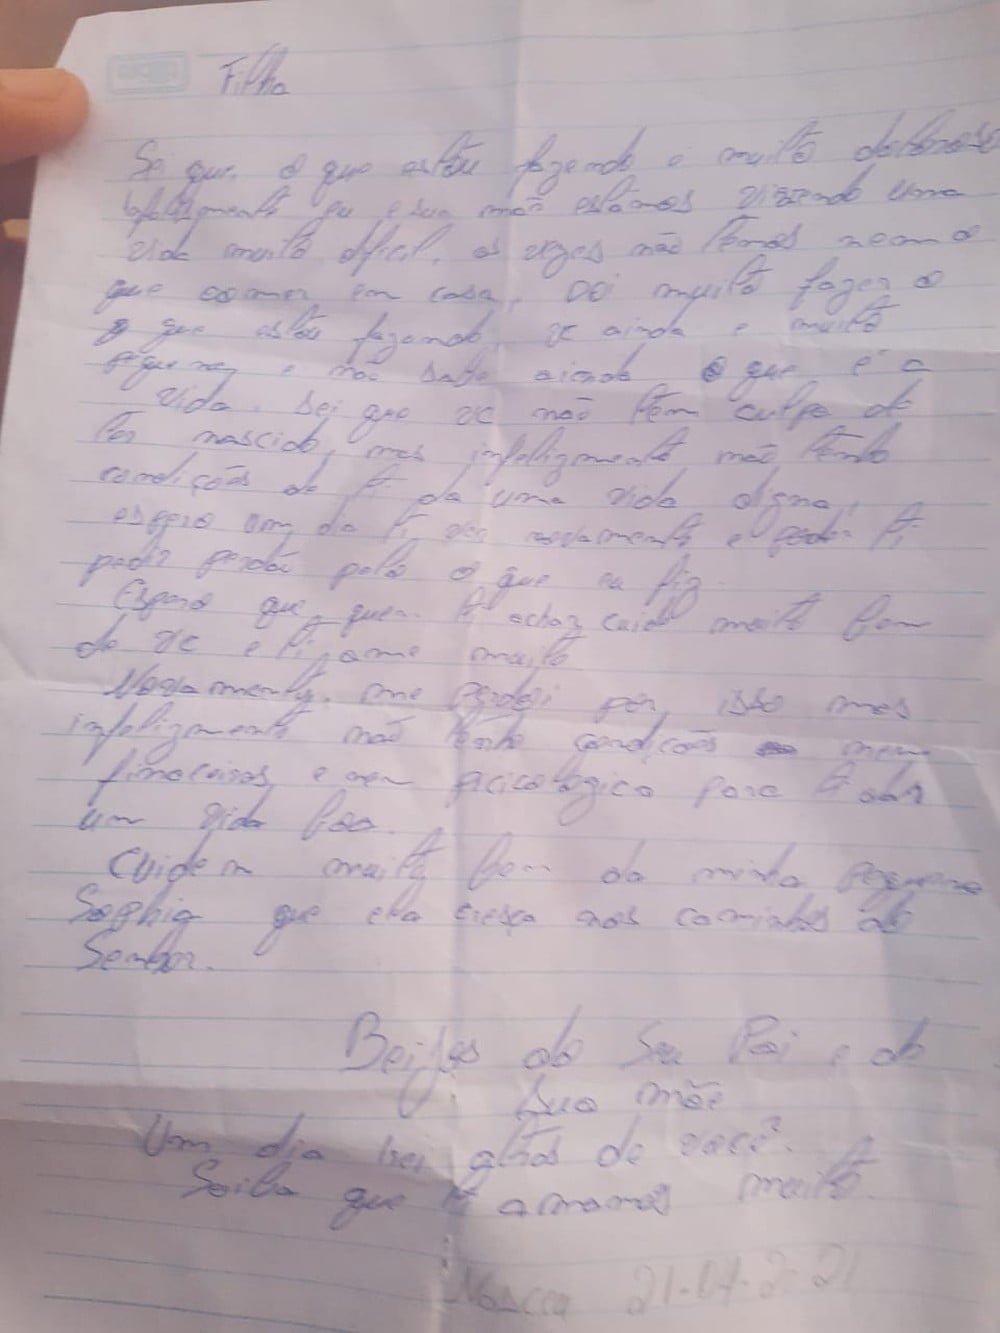 Filha
Sei que o que estou fazendo e muito doloroso
infelizmente eu e sua mãe estamos vivendo uma
vida muito dificil. as vezes não temos nem o
que comer em casa, Doi muito fazer o
o que estou fazendo, vc ainda e muito
pequena e não sabe ainda o que é a
vida. Sei que vc não têm culpa de
ter nascido, mas infelizmente não tenho
condições de ti da uma vida digna,
espero um dia ti ver novamente e poder ti
pedir perdão pelo o que eu fiz.
Espero que quem ti achar cuide muito bem
de vc e ti ame muito
Novamente me perdoi por isso mas
infelizmente não tenho condições nem
finaceiras e nem picicologico para ti dar
um vida boa.
Cuidem muito bem da minha pequena
Sophia que ela cresça nos caminhos do
Senhor.
Beijos do Seu Pai e da
Sua mãe
Um dia irei atras de você.
Saiba que ti amamos muito.
Nasceu 21-04-2021